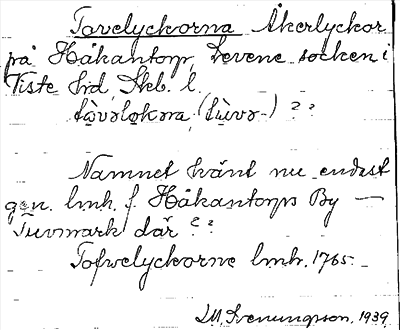 Tovelyckorna Åkerlyckor
på Håkantorp, Levene socken i
Viste hd, Skb. l.
tòvəlokɷna (tùvə-) ??
Namnet känt nu endast
gen. lmh. f. Håkantorps By —
Tuvmark där ??
Tofwelyckorne lmh. 1765.
I.M. Svenungson, 1939